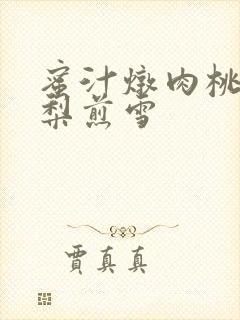 蜜汁燉肉桃
梨煎雪
賈真真